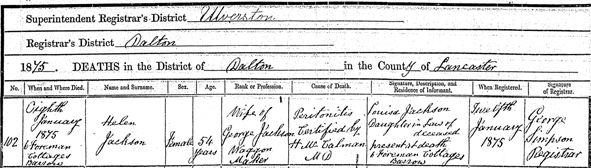 Superintendent Registrar's District Ulverston
Registrar's District Dalton
1875. DEATHS in the District of Dalton in the County of Lancaster
No. When and Where Died. Name and Surname. Sex. Age. Rank or Profession. Cause of Death. Signature, Description, and Residence of Informant. When Registered. Signature of Registrar.
102
Eighth
January
1875
6 Foreman
Cottages
Barrow
Helen
Jackson
Female
54
Years
Wife of
George Jackson
Waggon
Maker
Peritonitis
Certified by
H. W.
MD
Louisa Jackson
Daughter in Law of
deceased
present at death
6 Foreman Cottages
Barrow
Twelfth
January
1875
George
Simpson
Registrar